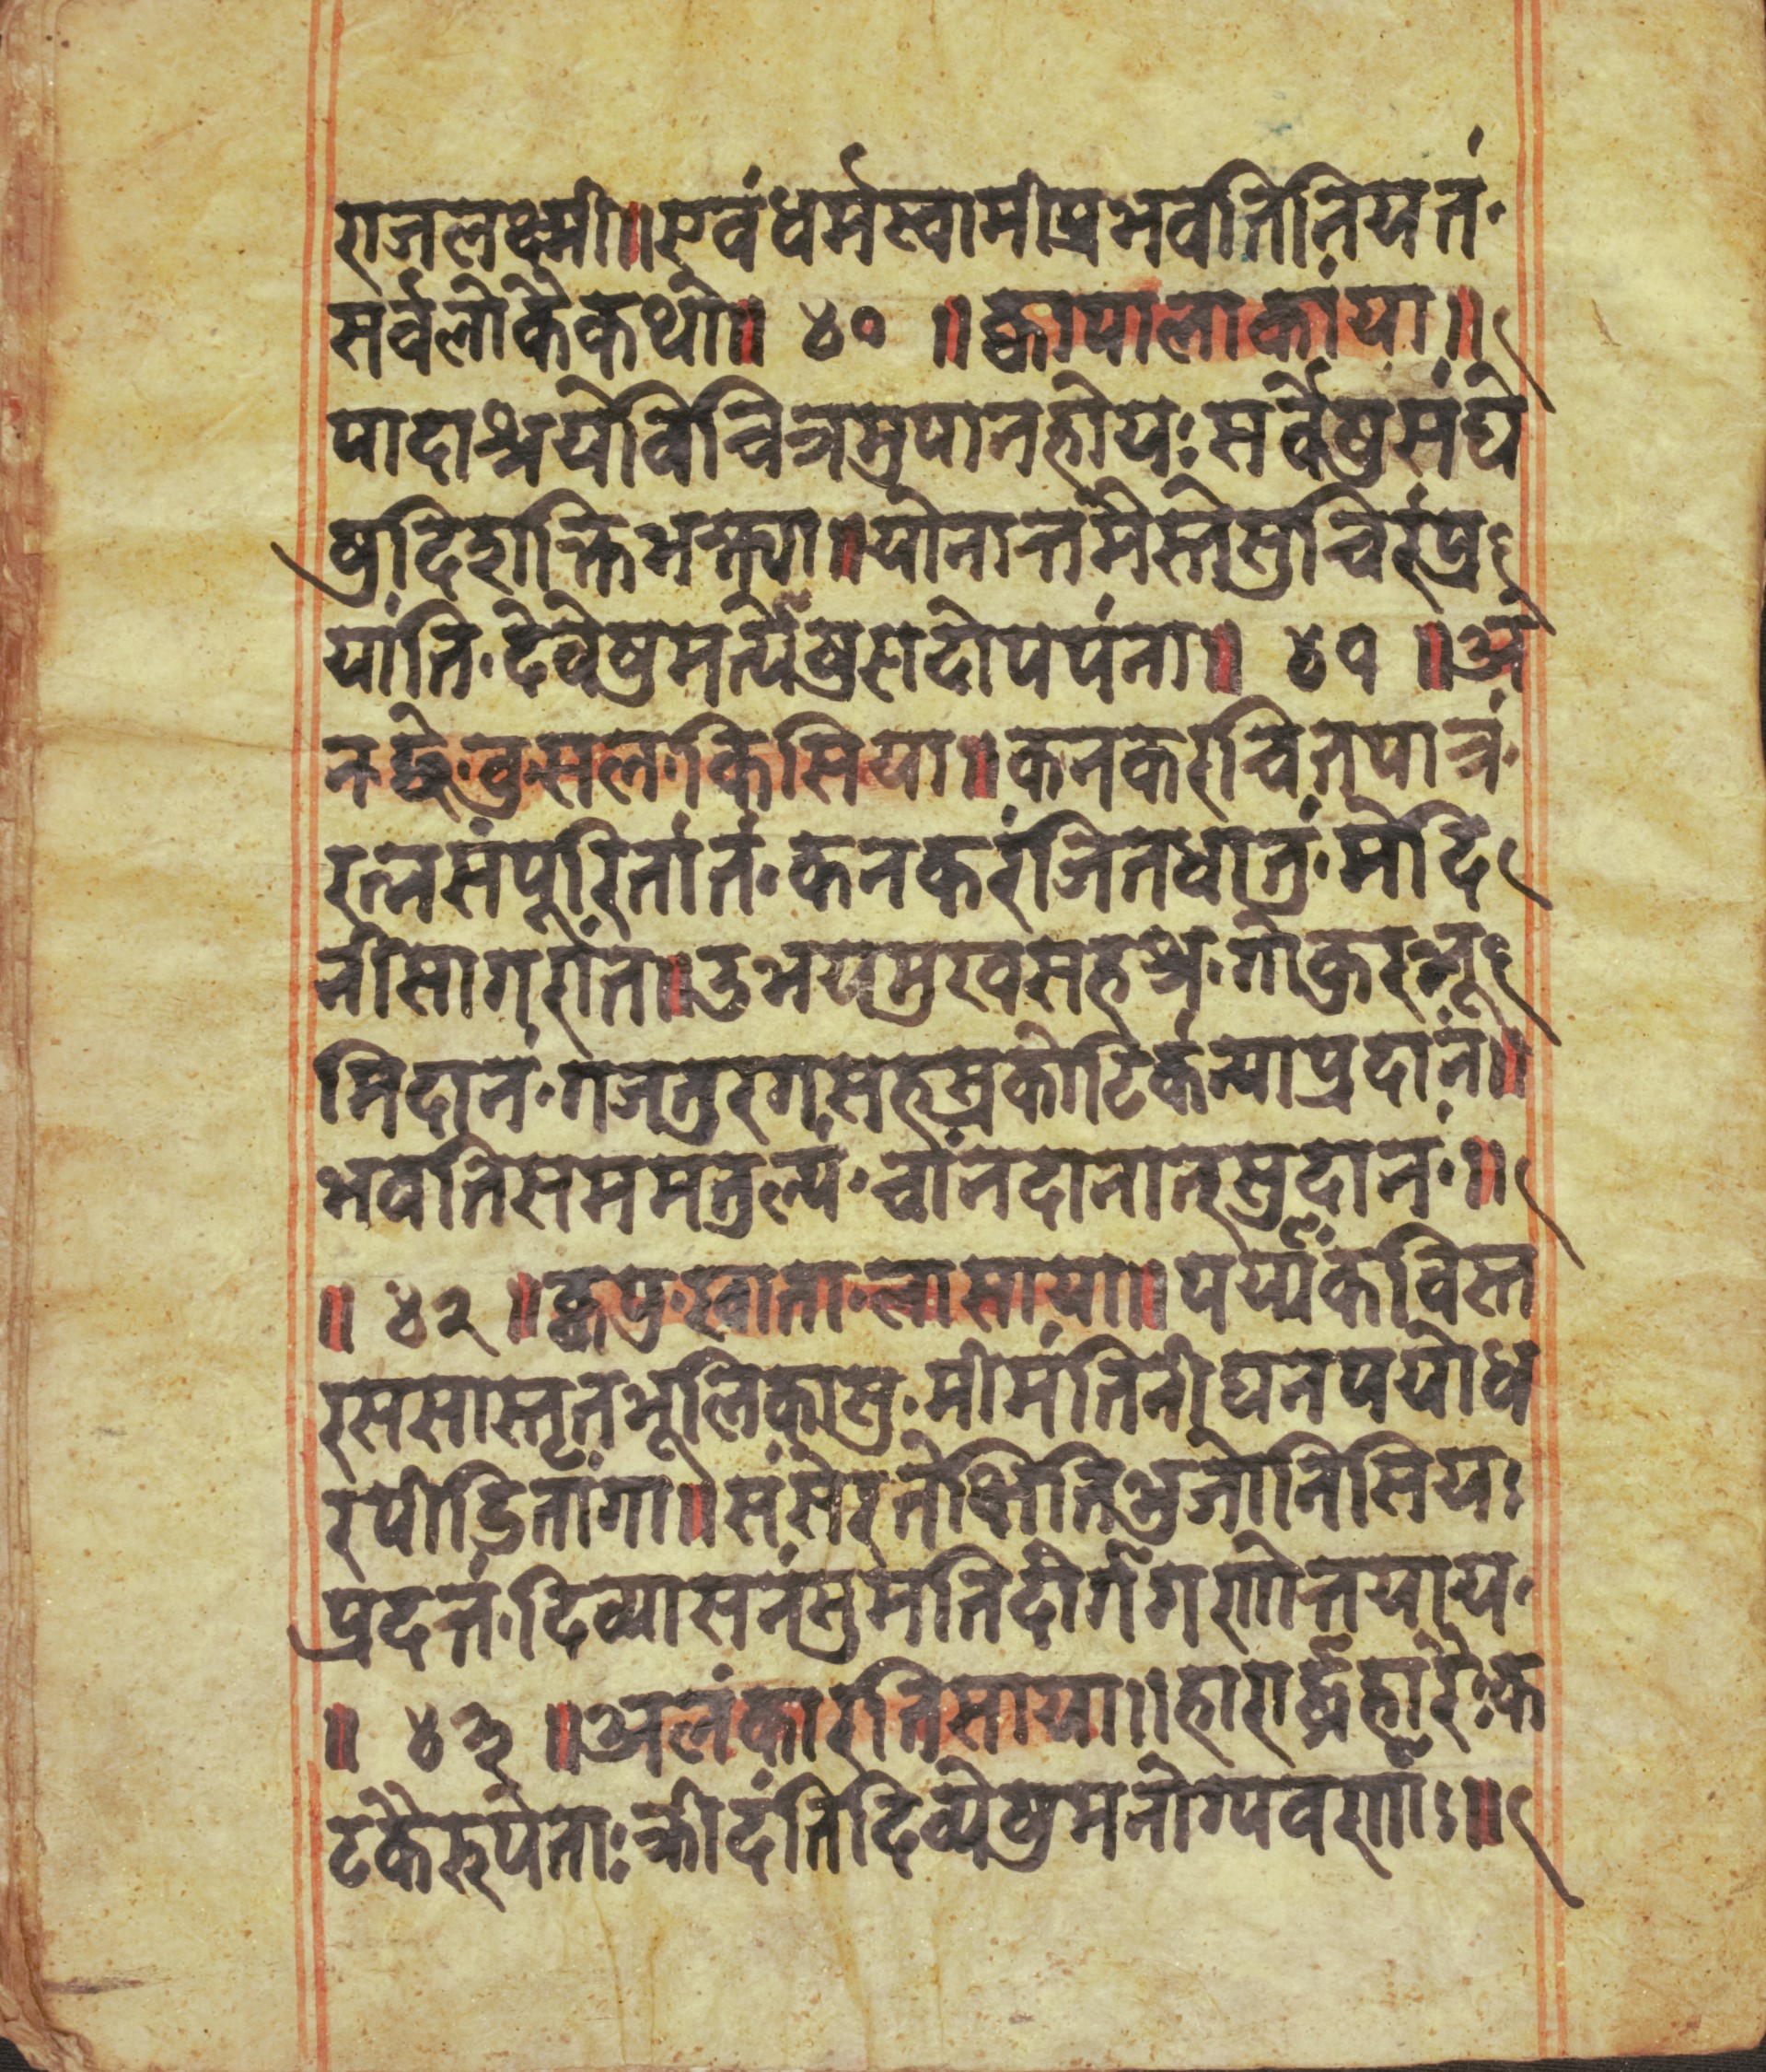 राजलक्ष्मी॥ एवंधर्मस्वामीप्रभवतिनियतं·
सर्वलोकैकथो॥ ४० ॥क्वापालाकांया॥
पादाश्रयेविचित्रमुपानहोयः सर्वेषुसंघे
षुदिशक्तिभक्त्या॥योनोत्तमैस्तेसुचिरंप्र
यांति·देवेषुमर्त्येषुशदोपपंना॥ ४१ ॥अं
नद्वे·वुसल·किसिया॥कनकरचितपात्रं·
रत्नसंपूरितांतं·कनकरंजितधातुं·मेदि
नीसागरांत॥उभयमुखसहश्र·गोकुरभू
मिदानं·गजतुरगसहस्रकोटिर्कन्याप्रदानं॥
भवतिसममतुल्यं·चांनदानात्सुदानं·॥
॥ ४२ ॥क्वपु·खाता·लासाया॥पर्य्यंकविस्त
रससास्तृतभूलिकासु·मीमंतिनीघनपयोध
रपीडितांगा॥संसेरतेक्षितिभुजोनिसियः
प्रदत्तं·दिव्यासनंसुमतिदीर्गंगणोत्तयाय·
॥ ४३ ॥अलंकारतिसाया॥हारार्द्धहारैःक
टकैरुपंनाः क्रीदंतिदिव्येषुमनोग्यवर्णाः॥